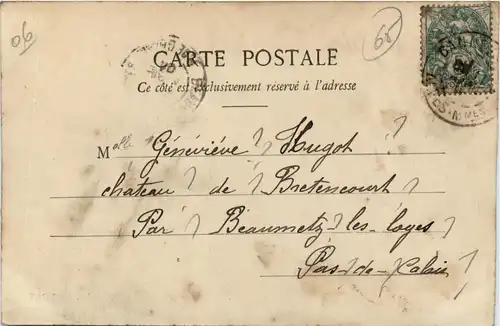 06
68
CARTE POSTALE
Ce côté est exclusivement réservé à l'adresse
Melle Généviéve Hugot
chateau de Bretencourt
Par Beaumetz-les-loges
Pas-de-Calais